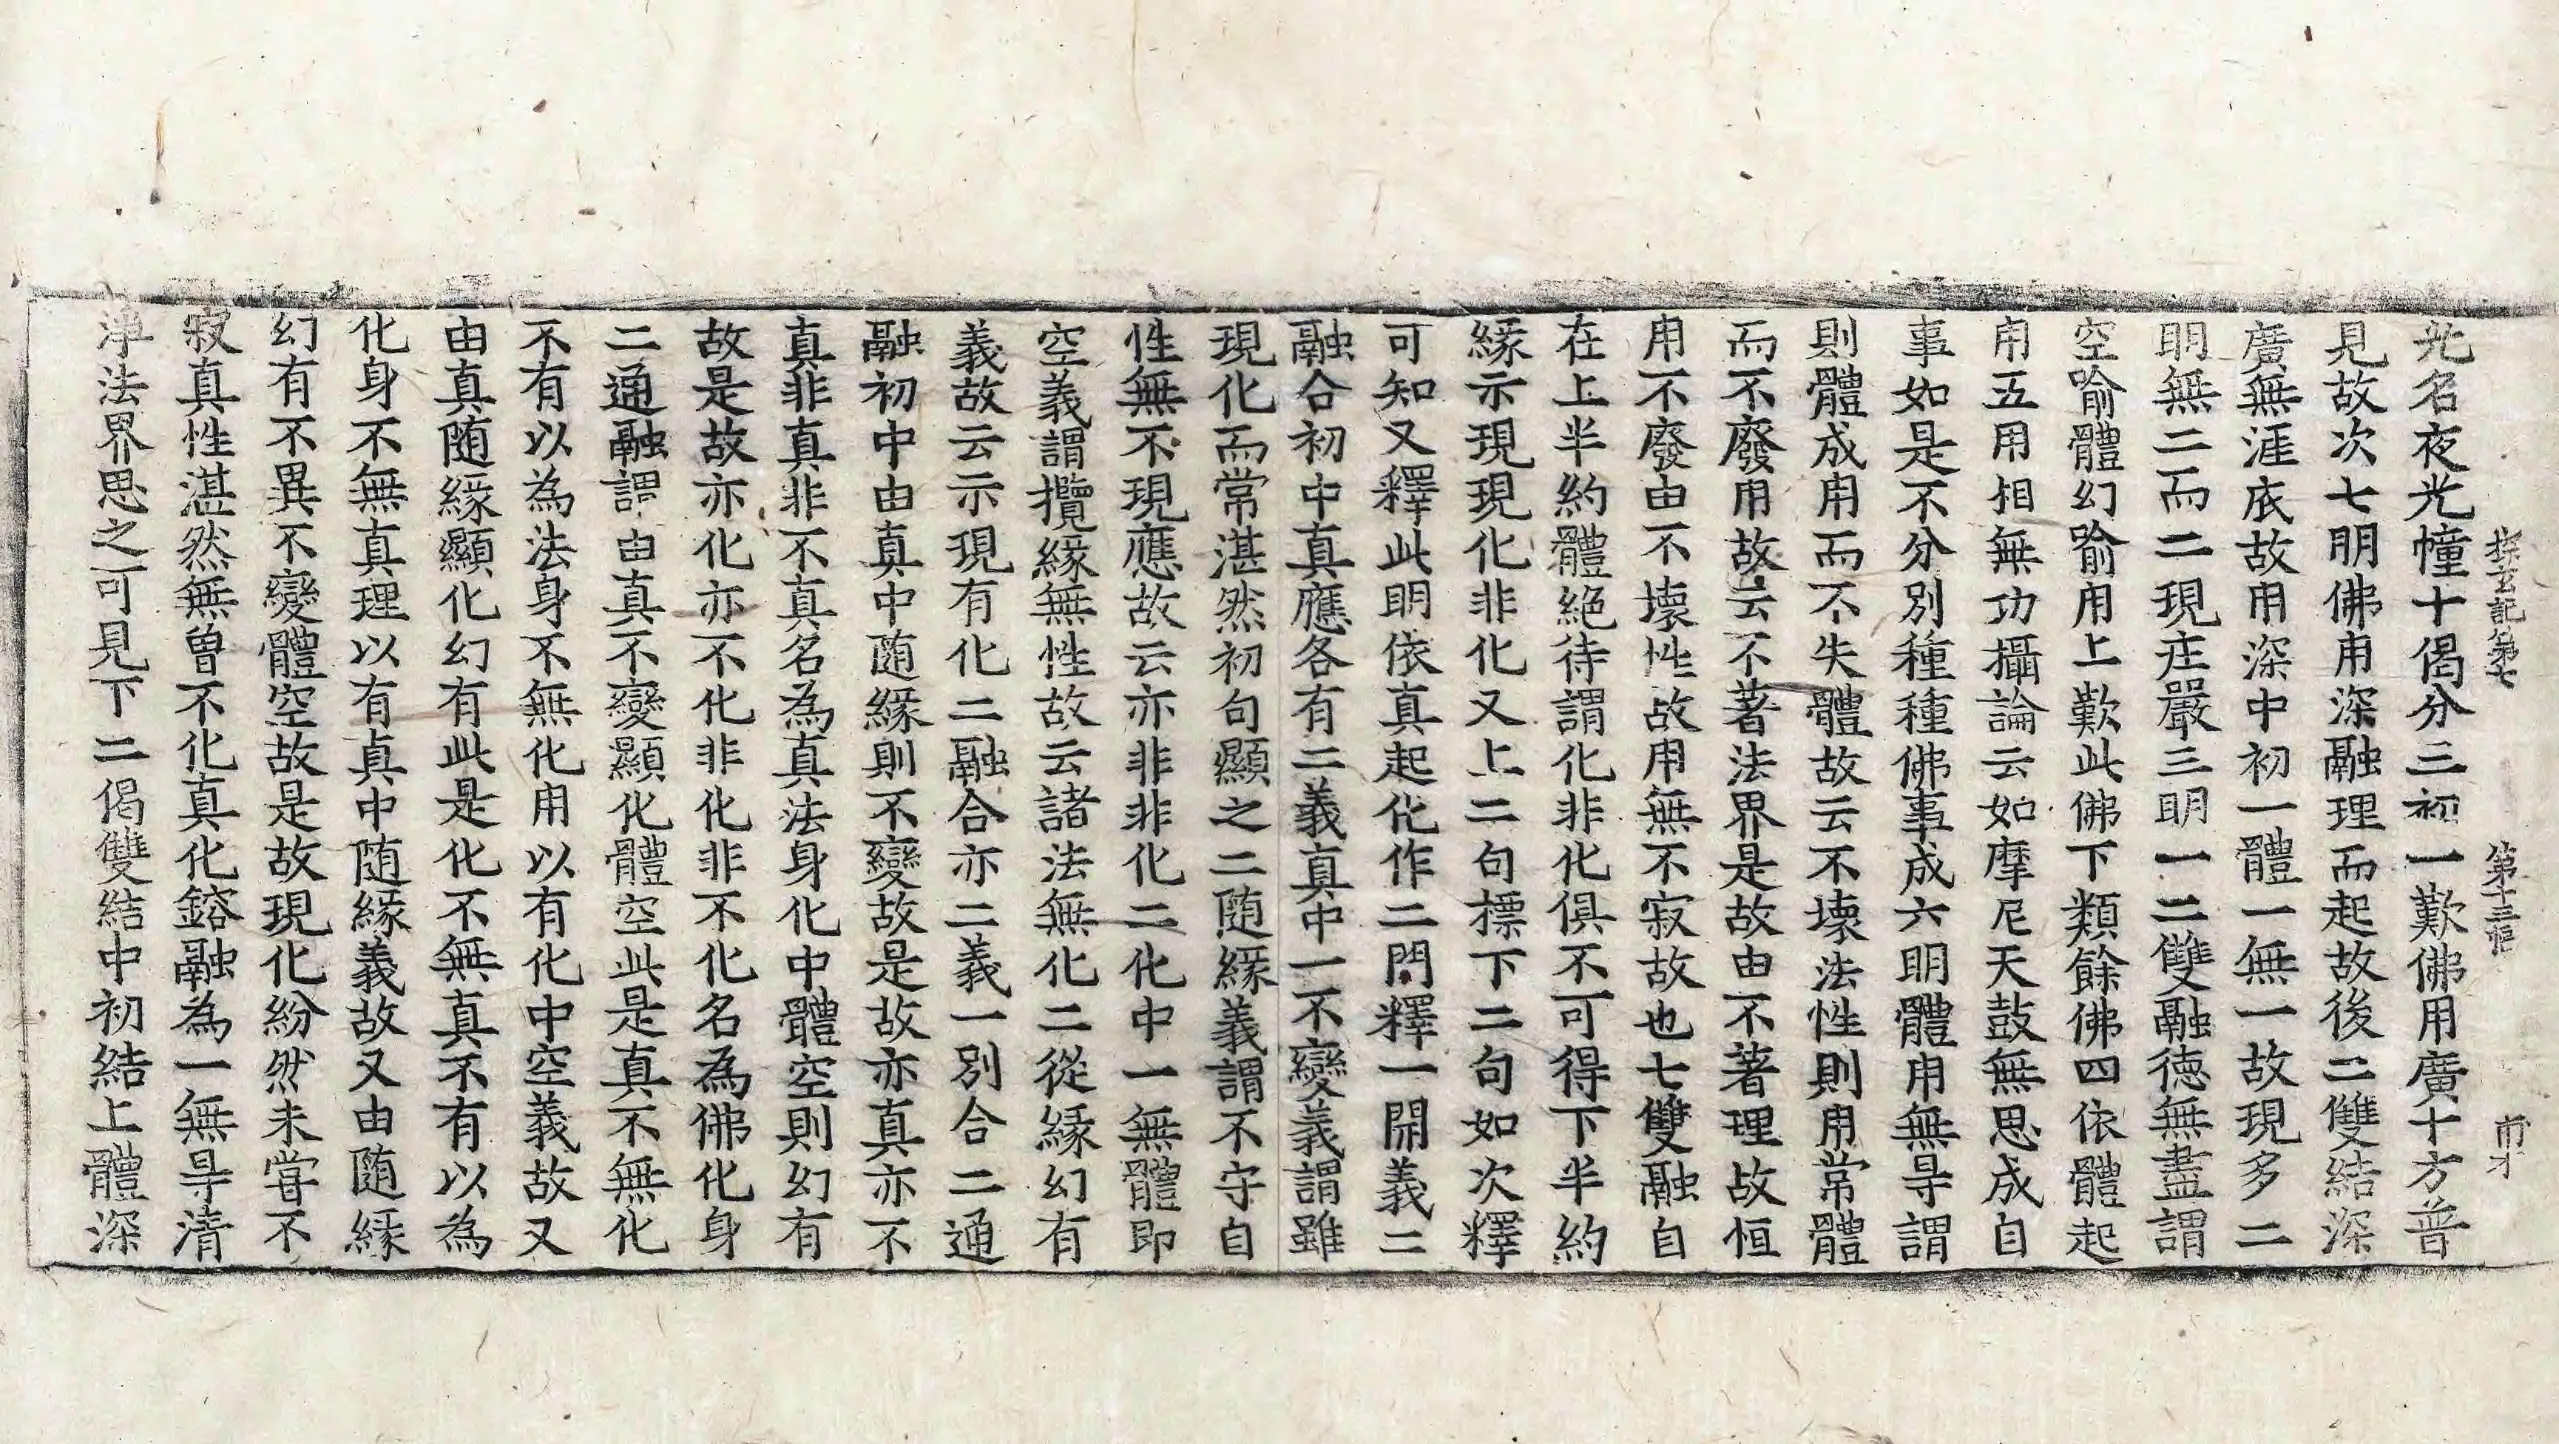 探玄記第七 第十三幅 市才
光名夜光幢十偈分三初一歎佛用廣十方普
見故次七明佛用深融理而起故後二雙結深
廣無涯底故用深中初一體一無一故現多二
明無二而二現庄嚴三明一二雙融德無盡謂
空喻體幻喻用上歎此佛下類餘佛四依體起
用五用相無功攝論云如摩尼天鼓無思成自
事如是不分別種種佛事成六明體用無㝵謂
則體成用而不失體故云不壞法性則用常體
而不廢用故云不著法界是故由不著理故恒
用不廢由不壞性故用無不寂故也七雙融自
在上半約體絕待謂化非化俱不可得下半約
緣示現現化非化又上二句摽下二句如次釋
可知又釋此明依真起化作二門釋一開義二
融合初中真應各有二義真中一不變義謂雖
現化而常湛然初句顯之二随緣義謂不守自
性無不現應故云亦非非化二化中一無體即
空義謂攬緣無性故云諸法無化二從緣幻有
義故云示現有化二融合亦二義一別合二通
融初中由真中随緣則不變故是故亦真亦不
真非真非不真名為真法身化中體空則幻有
故是故亦化亦不化非化非不化名為佛化身
二通融謂由真不變顯化體空此是真不無化
不有以為法身不無化用以有化中空義故又
由真随緣顯化幻有此是化不無真不有以為
化身不無真理以有真中随緣義故又由随緣
幻有不異不變體空故是故現化紛然未甞不
寂真性湛然無曽不化真化鎔融為一無㝵清
淨法界思之可見下二偈雙結中初結上體深